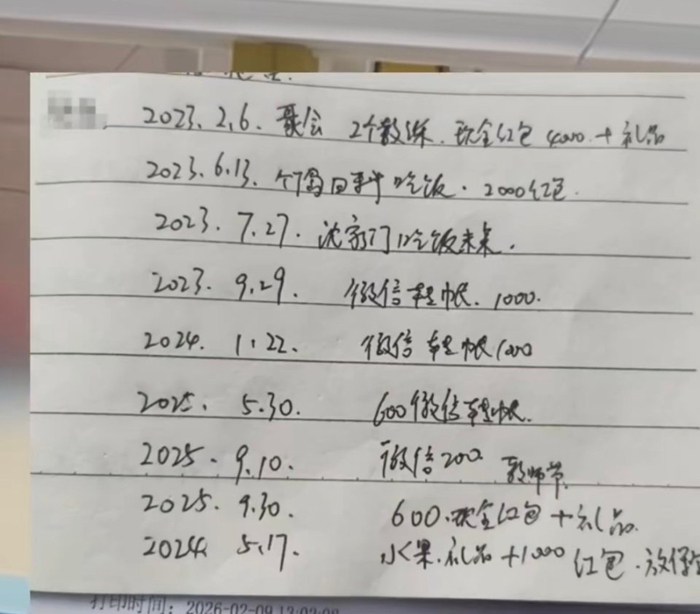 2023.2.6. 聚会 2个教练.现金红包4000.+礼品
2023.6.13. 个 日 吃饭.2000红包.
2023.7.27.沈家门吃饭未来.
2023.9.29. 微信转帐.1000.
2024.1.22. 微信转帐1000
2025.5.30. 600微信转帐.
2025.9.10. 微信200 教师节.
2025.9.30. 600.现金红包+礼品.
2024.5.17. 水果.礼品+1000红包.放
打印时间：2026-02-09 13:03:08